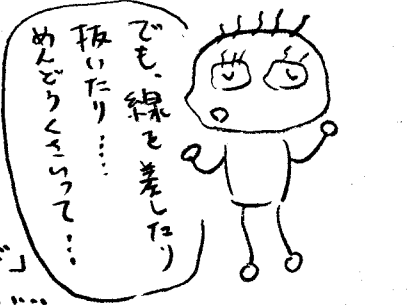 でも、線を差したり
抜いたり……
めんどうくさいって…